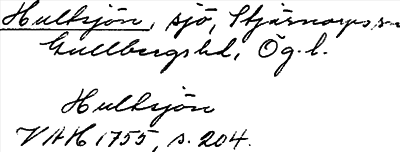 Hultsjön, sjö, Stjärnorps sn
Gullbergs hd, Ög. l.
Hultsjön
VAH 1755, s. 204.